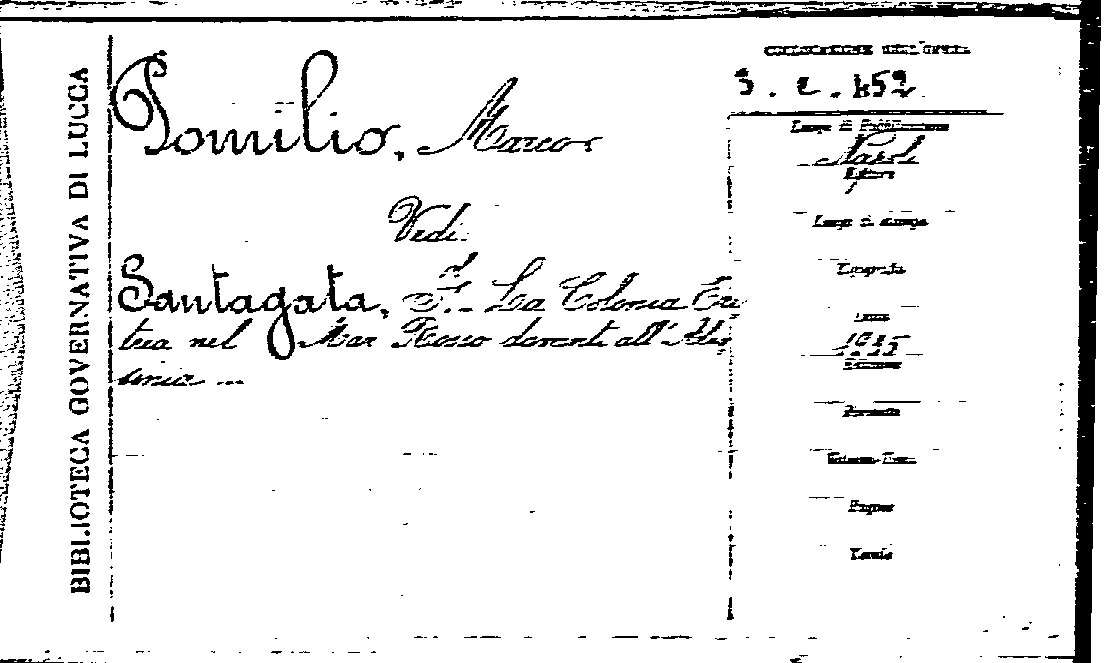 BIBLIOTECA GOVERNATIVA DI LUCCA
Pomilio, Marco
Vedi:
Santagata, F. La Colonia Eri
trea nel Mar Rosso davanti all'Abis
sinia ...
COLLOCAZIONE DELL'OPERA
Luogo di Pubblicazione
Napoli
Editore
Luogo di stampa
Tipografia
Data
1935
Formato
Pagine
Tavole